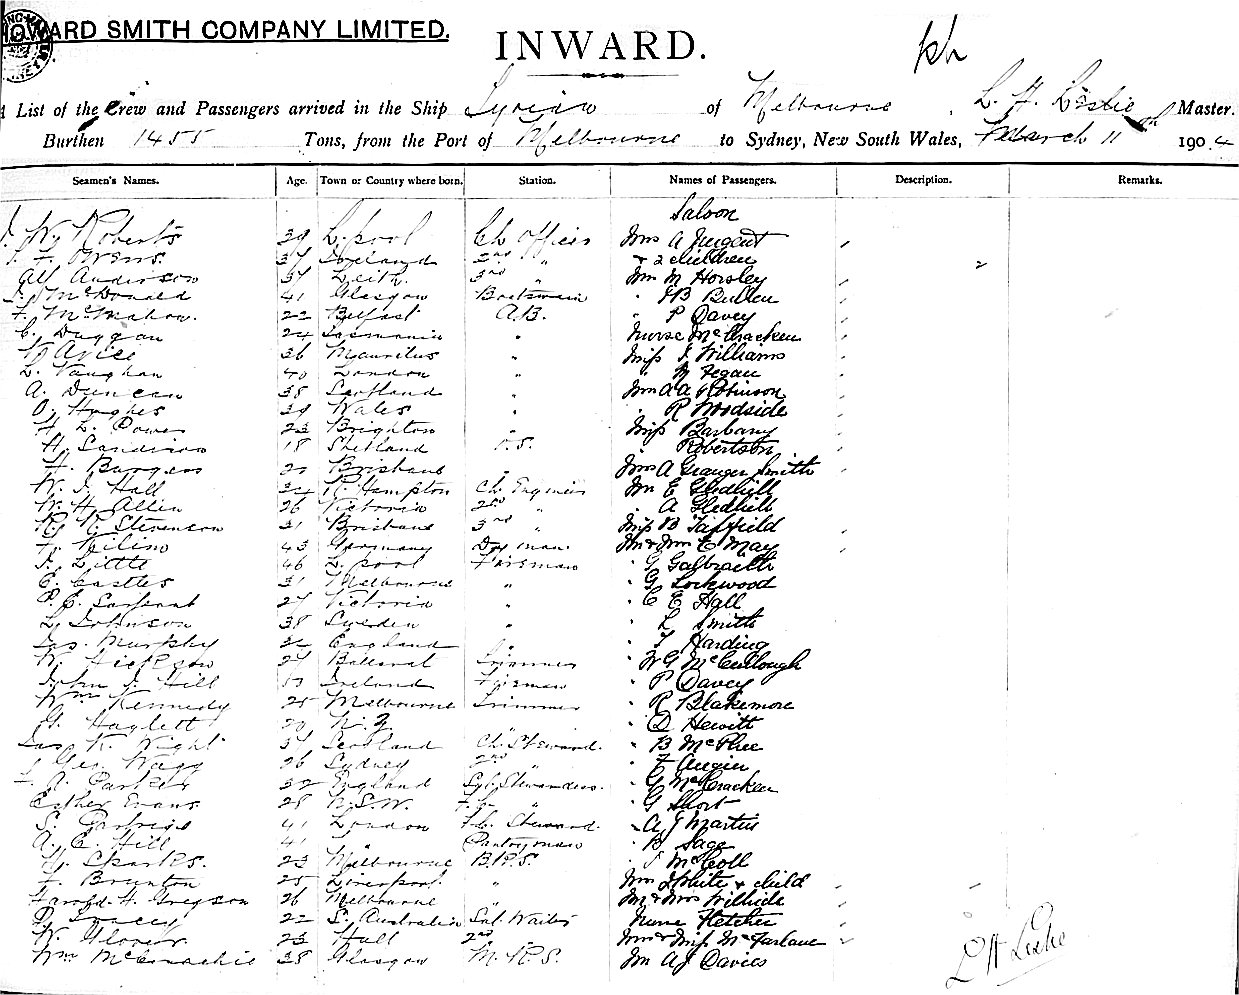 WARD SMITH COMPANY LIMITED.
INWARD.
List of the Crew and Passengers arrived in the Ship Syrian of Melbourne, L. H. Leslie Master.
Burthen 1455 Tons, from the Port of Melbourne to Sydney, New South Wales, March 11 1904
Seamen's Names. Age. Town or Country where born. Station. Names of Passengers. Description. Remarks.
Saloon
J. W. Roberts 39 L.pool Ch Officer Mrs A Nugent
Owens 37 Ireland 2nd " & 2 children 2
Alf Anderson 37 Leith 3rd " Mrs M Horsley
McDonald 41 Glasgow Boatswain " Bullen
F. McMahon 22 Belfast A.B. " P Davey
C. Duggan 24 Tasmania " Nurse McCracken
36 Mauritus " Miss J Williams
L. Vaughan 40 London " " Fegan
A. Duncan 38 Scotland " Mrs A A Robinson
O. Hughes 39 Wales " " R Woodside
H. L. Power 23 Brighton " Miss Barbary
H. 18 Shetland O.S. Robertson
H. Burgess Brisbane " Mrs A Granger Smith
W. J. Hall R. Hampton Ch. Engineer Mr E Gledhill
W. H. Allen 26 Victoria 2nd " A Gledhill
R. Stevenson 31 Brisbane 3rd " Miss B
43 Germany Dky man. Mr & Mrs C May
A. Little 46 L.pool Fireman " G Galbraith
E. Castles 31 Melbourne " " G Lockwood
P. E. 27 Victoria " " C E Hall
L. Johnson 38 Sweden " L Smith
Jas. Murphy England " " T Harding
W. Hickson 27 Ballarat Trimmer " W G McCullough
John J. Hill Ireland Fireman " P Davey
Wm Kennedy 25 Melbourne Trimmer " R Blakemore
G. Haylett 20 N.Z. " " D Hewitt
Jas. K. Wight 37 Scotland Ch. Steward. " B McPhee
Geo. Wagg 26 Sydney 2nd " " F Augier
A. Parker 32 England Stewardess. " G McCracken
Esther Evans 28 N.S.W. " " G Short
S. 41 London F.C. Steward. " A J Martin
A. E. Hill 41 " Pantryman " B Sage
Charles. 23 Melbourne B.R.S. " McColl
F. Brunton 25 Liverpool. " Mrs White & child
Harold H. Gregson 26 Melbourne " Mr & Mrs Wilhide
P. Tracey 22 S. Australia Sal. Waiter Nurse Fletcher
W. Glover 23 Hull 2nd " Mrs & Miss McFarlane
Wm 38 Glasgow M.R.S. Mr A J Davies
L H Leslie